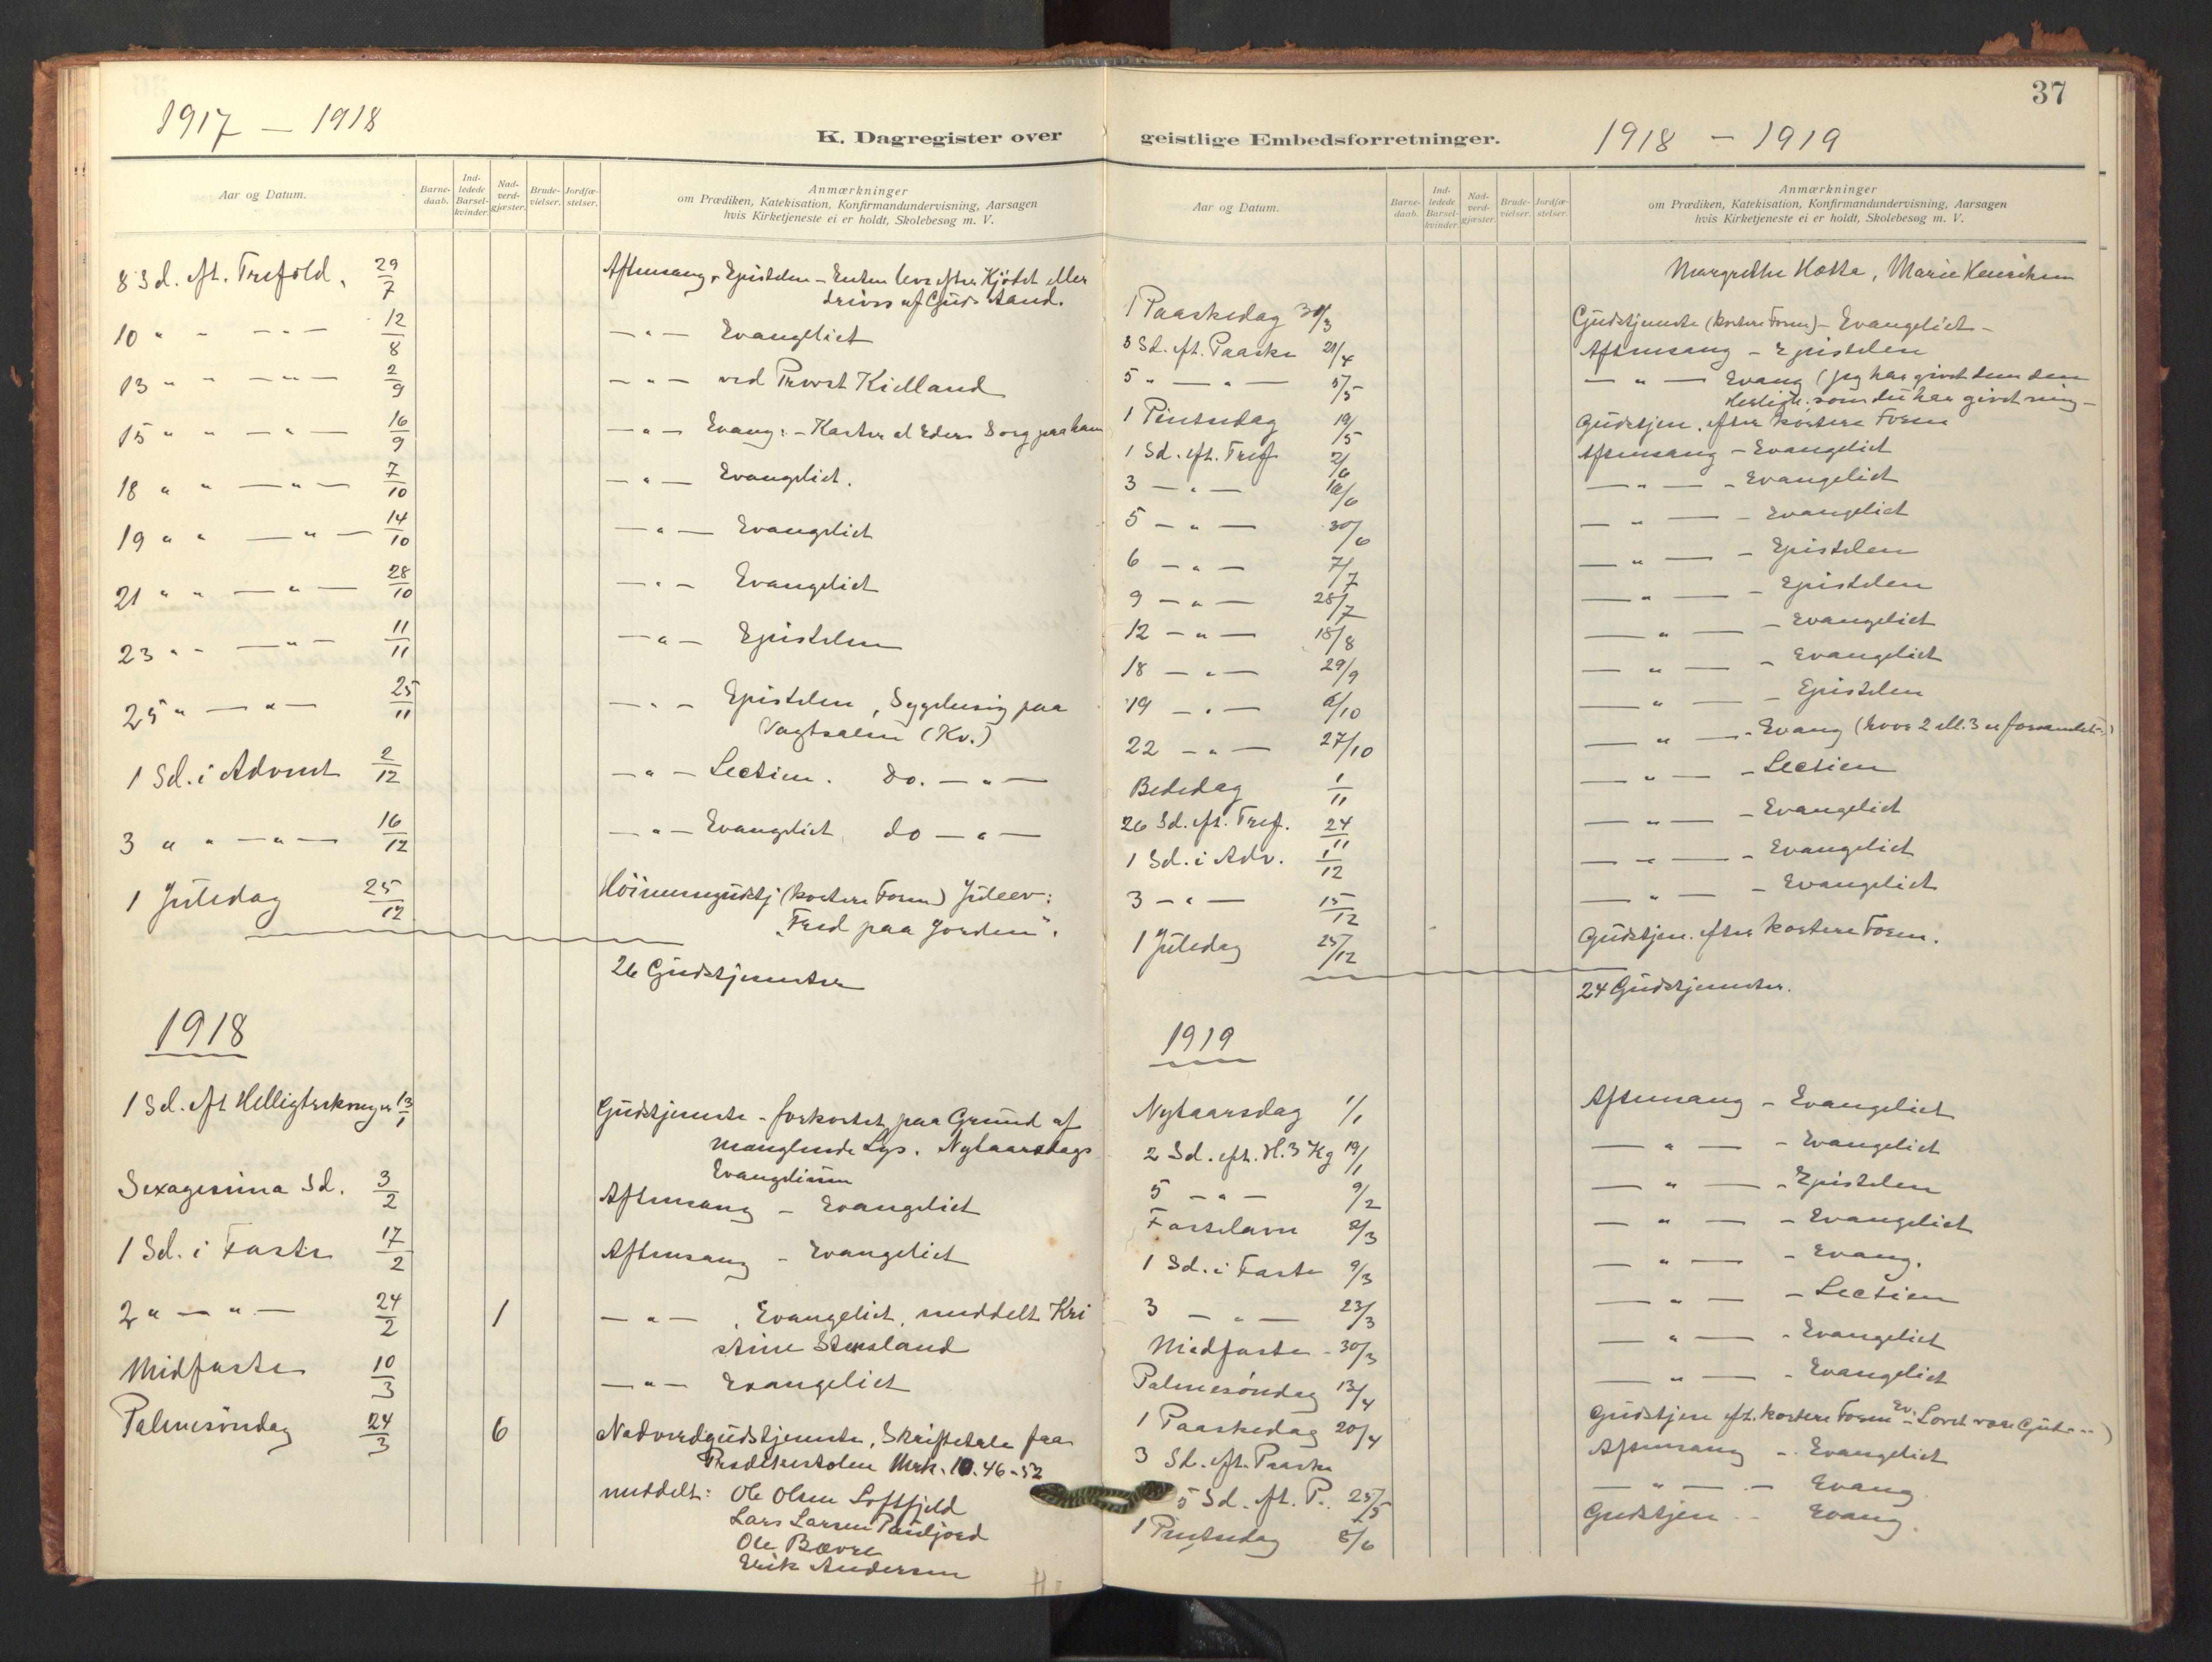 1917 — 1918
K. Dagregister over
Aar og Datum.
Barne-daab.
Ind-ledede Barsel-kvinder.
Nad-verd-gjæster.
Brude-vielser.
Jordfæ-stelser.
Anmærkninger
om Prædiken, Katekisation, Konfirmandundervisning, Aarsagen
hvis Kirketjeneste ei er holdt, Skolebesøg m. V.
8 Sd. eft. Trefold. 29/7 Aftensang - Epistelen - Enten leve efter Kjødet eller
drives af Guds Aand.
10 " - — " — 12/8 — " — Evangeliet
13 " - — " — 2/9 — " — ved Provst Kielland
15 " " — " — 16/9 — " — Evang: - Kaster al Eders Sorg paa ham
18 " " — " — 7/10 — " — Evangeliet.
19 " " — " — 14/10 — " — Evangeliet
21 " " — " — 28/10 — " — Evangeliet
23 " - — " — 11/11 — " — Epistelen
25 " — " — 25/11 — " — Epistelen, Sygelusing paa
Vagtsalen (Kv.)
1 Sd. i Advent 2/12 — " — Lectien. Do. — " —
3 " " — " — 16/12 — " — Evangeliet, do — " —
1 Juledag 25/12 Höimessegudstj (kortere Form) Juleev:
"Fred paa Jorden".
26 Gudstjenester
1918
1 Sd. eft Helligtrekonger 13/1 Gudstjeneste - forkortet paa Grund af
manglende Lys. Nytaarsdags
Evangelium
Sexagesima Sd. 3/2 Aftensang - Evangeliet
1 Sd. i Faste 17/2 Aftensang - Evangeliet
2 " — " — 24/2 1 — " — , Evangeliet, meddelt Kri
stine Stensland
Midfaste 10/3 — " — Evangeliet
Palmesöndag 24/3 6 Nadverdgudstjeneste, Skriftetale fra
Prædikestolen Mrk. 10. 46-52
meddelt: Ole Olsen Loftfjeld
Lars Larsen Pauljord
Ole Bævre
Erik Andersen
37
geistlige Embedsforretninger.
1918 — 1919
Aar og Datum.
Barne-daab.
Ind-ledede Barsel-kvinder.
Nad-verd-gjæster.
Brude-vielser.
Jordfæ-stelser.
Anmærkninger
om Prædiken, Katekisation, Konfirmandundervisning, Aarsagen
hvis Kirketjeneste ei er holdt, Skolebesøg m. V.
Margrethe Hætta, Marie Henriksen
1 Paaskedag 31/3 Gudstjeneste (kortere Form) - Evangeliet -
3 Sd. eft. Paaske 21/4 Aftensang - Epistelen
5 " — " — 5/5 — " — Evang (Jeg har givet dem den
Herligh. som du har givet mig -
1 Pintsedag 19/5 Gudstjen. efter kortere Form
1 Sd. eft. Tref 2/6 Aftensang - Evangeliet
3 — " — 16/6 — " — - Evangeliet
5 — " — 30/6 — " — - Evangeliet
6 — " — 7/7 — " — - Epistelen
9 — " — 28/7 — " — - Epistelen
12 — " — 18/8 — " — - Evangeliet
18 — " — 29/9 — " — - Evangeliet
19 — " — 6/10 — " — - Epistelen
22 — " — 27/10 — " — - Evang (hvor 2 ell. 3 er forsamlet -)
Bededag 1/11 — " — - Lectien
26 Sd. eft. Tref. 24/11 — " — - Evangeliet
1 Sd. i Adv. 1/12 — " — - Evangeliet
3 — " — 15/12 — " — - Evangeliet
1 Juledag 25/12 Gudstjen. efter kortere Form.
24 Gudstjenester.
1919
Nytaarsdag 1/1 Aftensang - Evangeliet
2 Sd. eft. H. 3 Kg 19/1 — " — - Evangeliet
5 — " — 9/2 — " — - Epistelen
Fastelavn 2/3 — " — - Evangeliet
1 Sd. i Faste 9/3 — " — - Evang.
3 — " — 23/3 — " — - Lectien
Midfaste - 30/3 — " — - Evangeliet
Palmesöndag 13/4 — " — - Evangeliet
1 Paaskedag 20/4 Gudstjen eft. kortere Form Ev. - Lovet være Gud - -)
3 Sd. eft. Paaske Aftensang - Evangeliet
5 Sd. eft. P. 25/5 — " — - Evang
1 Pintsedag 8/6 Gudstjen - Evang.